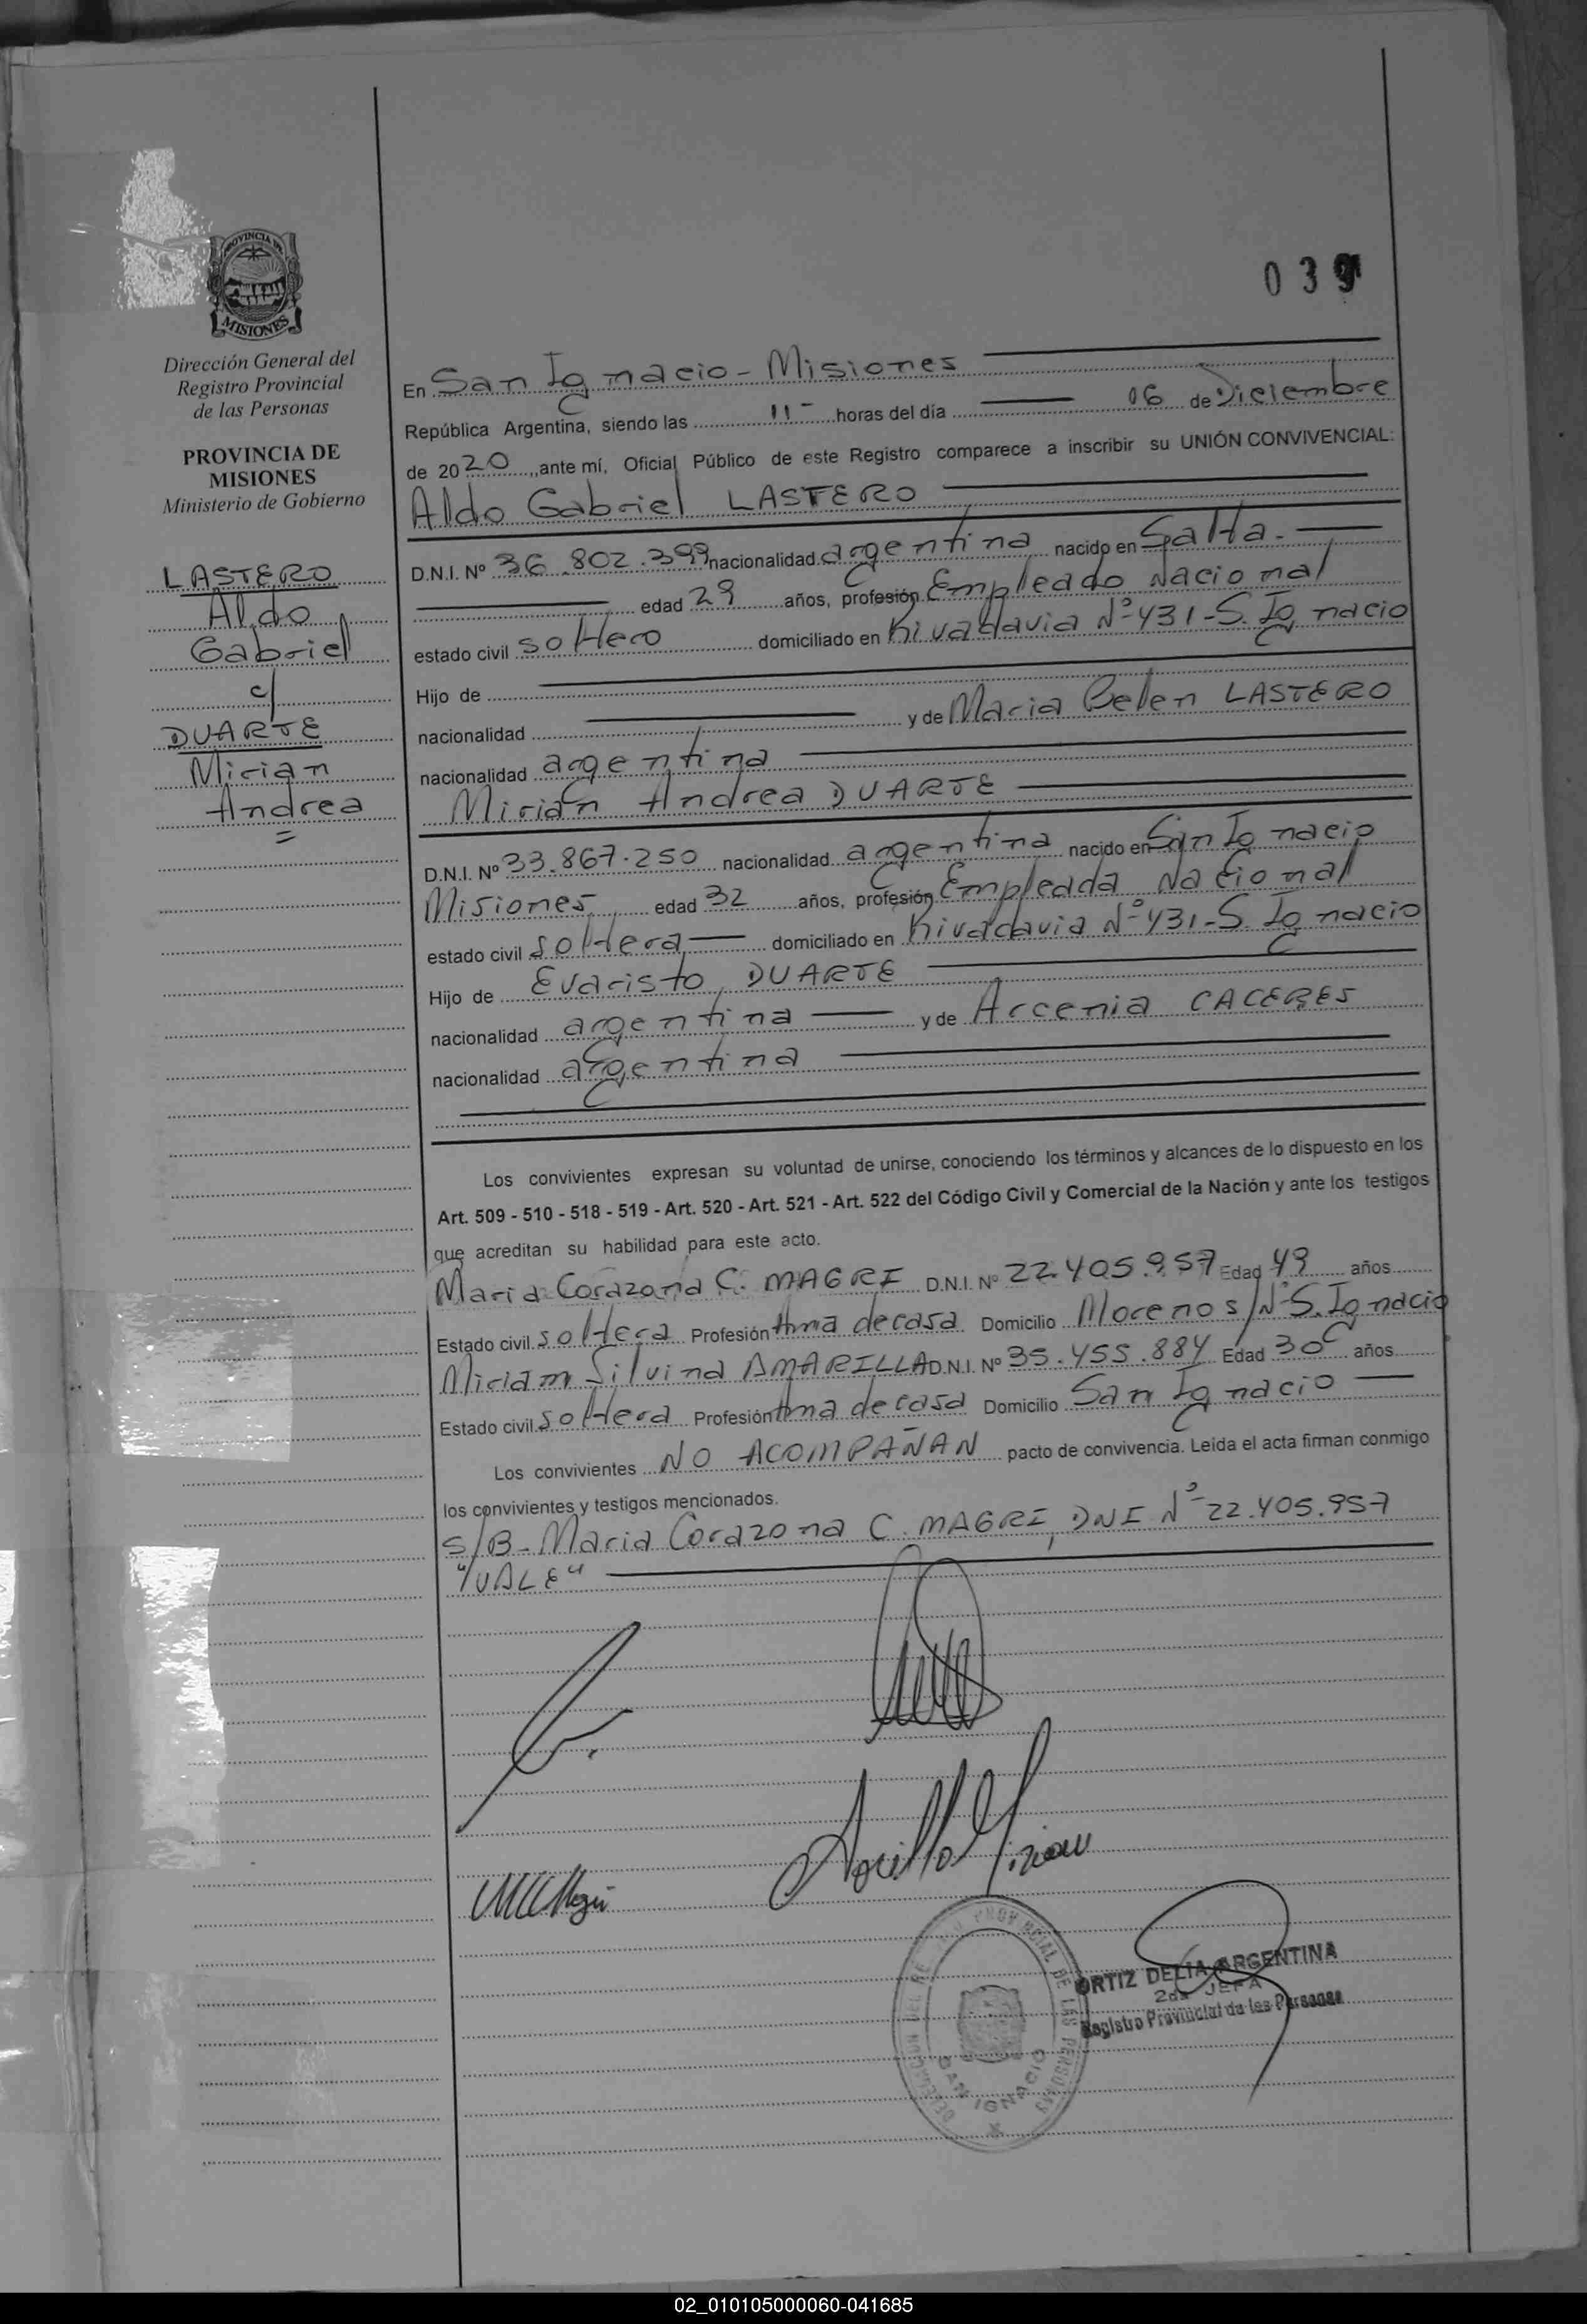 PROVINCIA DE
MISIONES
Dirección General del
Registro Provincial
de las Personas
PROVINCIA DE
MISIONES
Ministerio de Gobierno
LASTERO
Aldo
Gabriel
c/
DUARTE
Mirian
Andrea
039
En San Ignacio - Misiones
República Argentina, siendo las 11 - horas del día 06 de Diciembre
de 2020, ante mí, Oficial Público de este Registro comparece a inscribir su UNIÓN CONVIVENCIAL:
Aldo Gabriel LASTERO
D.N.I. Nº 36.802.399 nacionalidad argentina nacido en Salta.
edad 29 años, profesión Empleado Nacional
estado civil soltero domiciliado en Rivadavia Nº 431 - S. Ignacio
Hijo de
nacionalidad y de Maria Belen LASTERO
nacionalidad argentina
Mirian Andrea DUARTE
D.N.I. Nº 33.867.250 nacionalidad argentina nacido en San Ignacio
Misiones edad 32 años, profesión Empleada Nacional
estado civil soltera domiciliado en Rivadavia Nº 431 - S. Ignacio
Hijo de Evaristo DUARTE
nacionalidad argentina y de Arcenia CACERES
nacionalidad argentina
Los convivientes expresan su voluntad de unirse, conociendo los términos y alcances de lo dispuesto en los
Art. 509 - 510 - 518 - 519 - Art. 520 - Art. 521 - Art. 522 del Código Civil y Comercial de la Nación y ante los testigos
que acreditan su habilidad para este acto.
Maria Corazona C. MAGRI D.N.I. Nº 22.405.957 Edad 49 años
Estado civil soltera Profesión Ama de casa Domicilio Moreno s/Nº S. Ignacio
Miriam Silvina AMARILLA D.N.I. Nº 35.455.884 Edad 30 años
Estado civil soltera Profesión Ama de casa Domicilio San Ignacio
Los convivientes NO ACOMPAÑAN pacto de convivencia. Leída el acta firman conmigo
los convivientes y testigos mencionados.
S/B - Maria Corazona C. MAGRI, DNI Nº 22.405.957
"VALE"
ORTIZ DELIA ARGENTINA
2da JEFA
Registro Provincial de las Personas
SAN IGNACIO
02_010105000060-041685